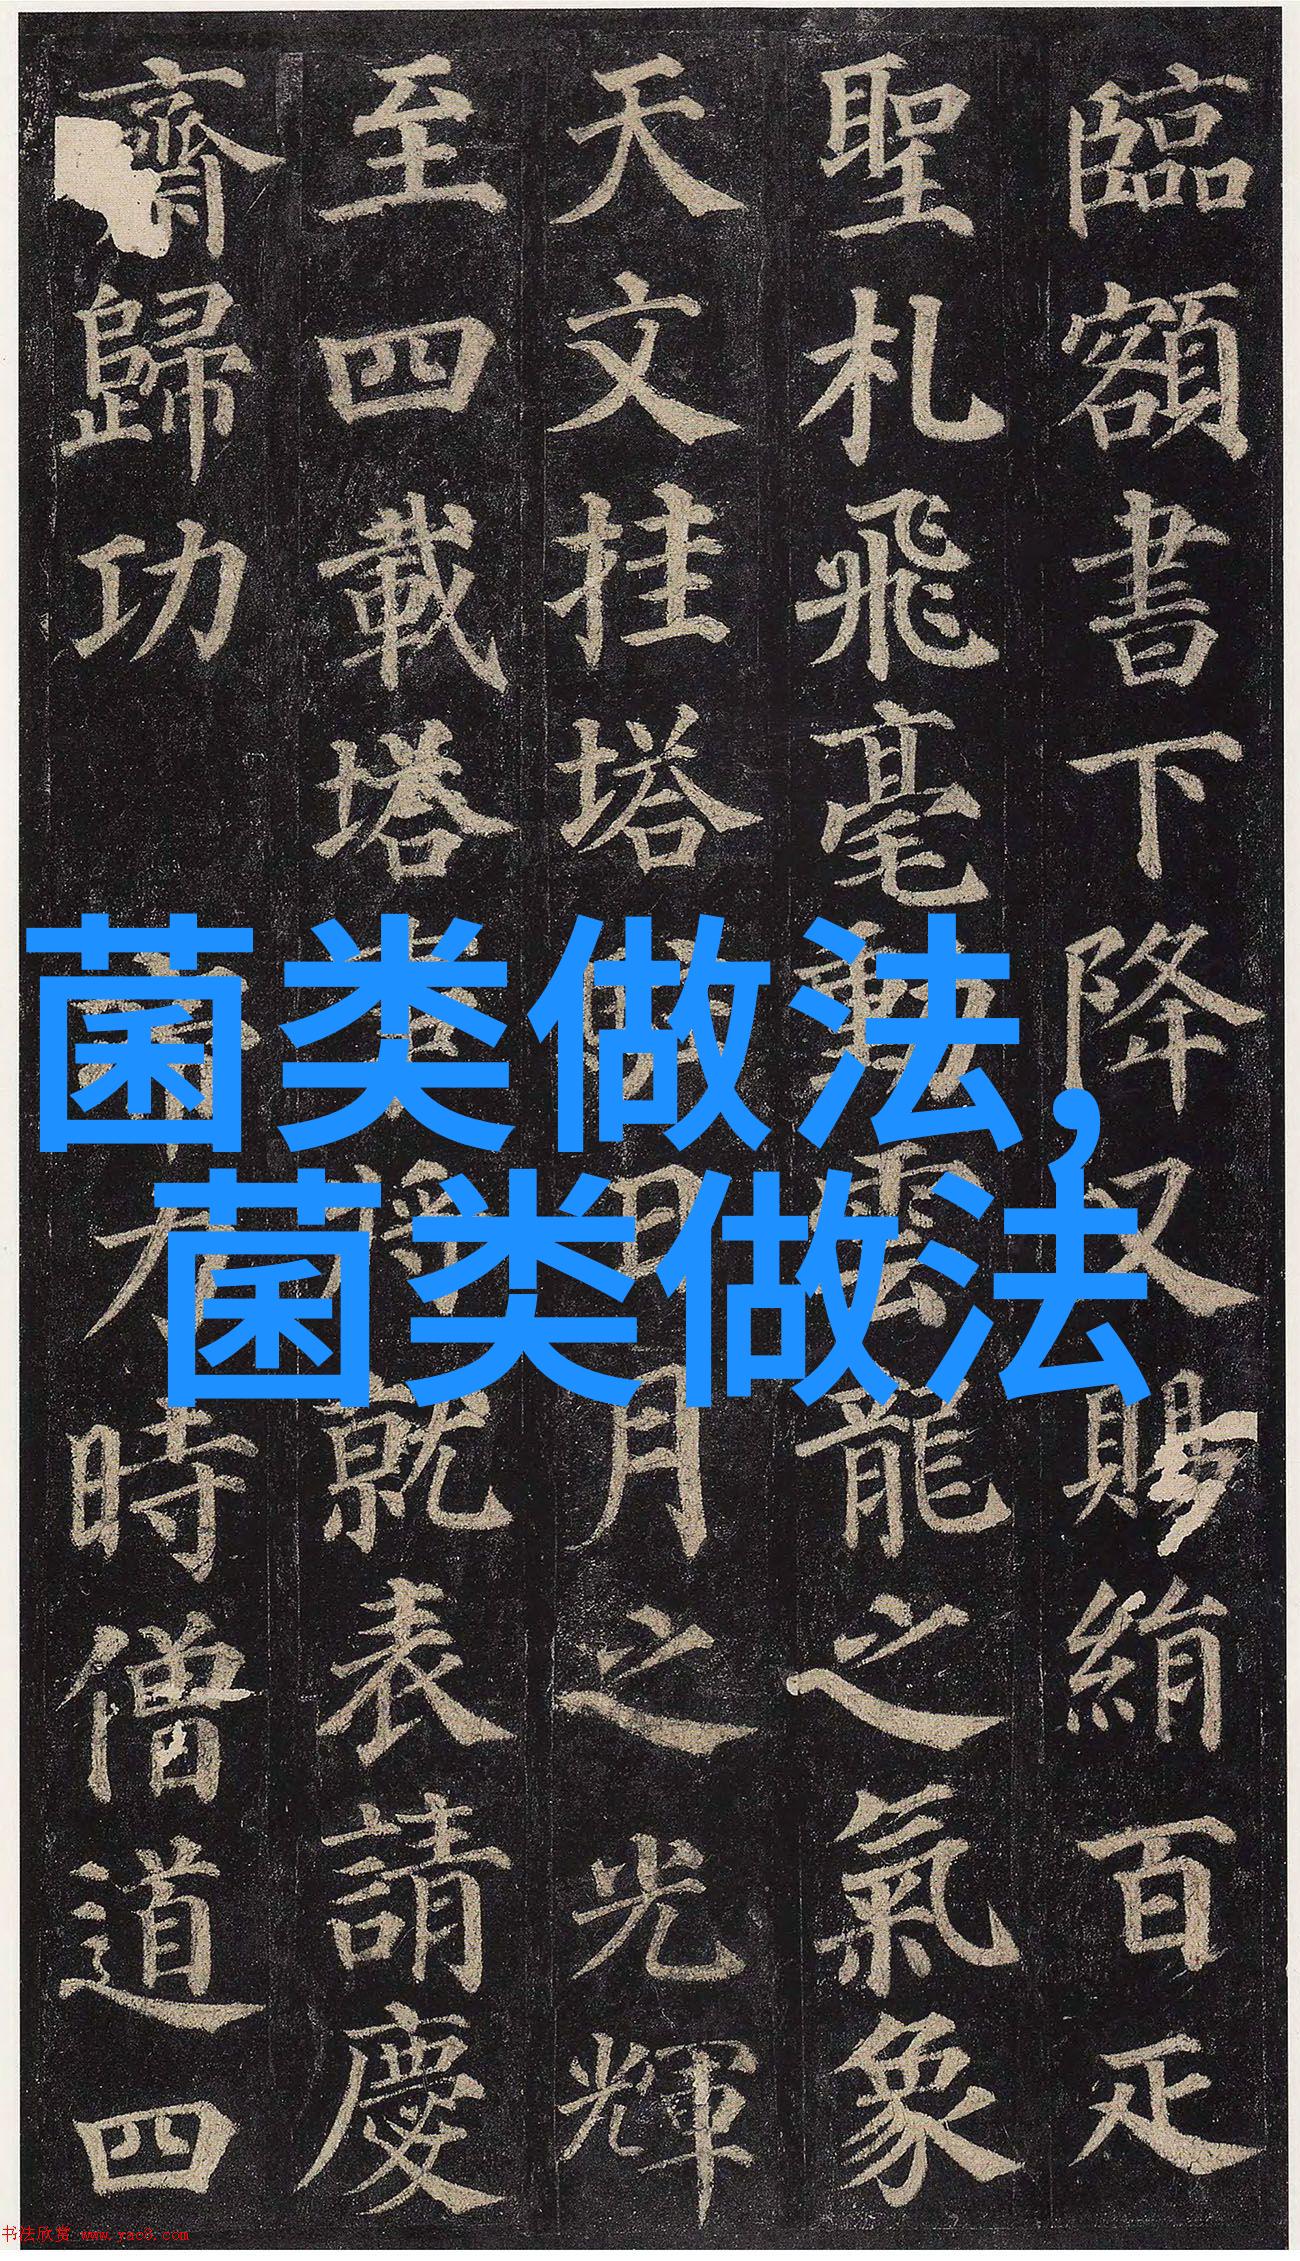 臨額書下降又賜絹百疋
聖札飛毫動雲龍之氣象
天文挂塔駐日月之光輝
至四載塔事將就表請慶
齋歸功
帝力時僧道四
菌类做法,
菌类做法
书法欣赏 www.yac8.com